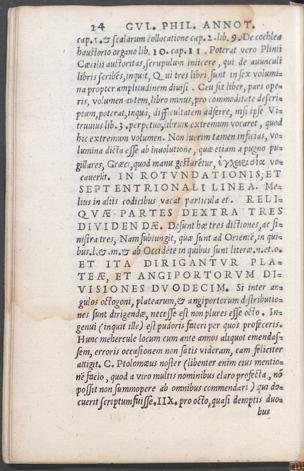 24 GVL. PHIL. ANNOT.
cap. 1. & scalarum collocatione cap. 2. lib. 9. De cochlea
haustorio organo lib. 10. cap. 11. Poterat vero Plinii
Cæcilii auctoritas, scrupulum iniicere, qui de auunculi
libris scribēs, inquit, Qui tres libri sunt in sex volumi-
na propter amplitudinem diuisi. Ceu sit liber, pars ope-
ris, volumen autem, libro minus, pro commoditate descri-
ptum, poterat, inqui, difficultatem adferre, nisi ipse Vi-
truuius lib. 3. perpetuo, librum existimaret vocaret, quod
hic extremum volumen. Non iuerim tamen inficias, vo-
lumina dicta esse ab inuolutione, quæ etiam a pugno pu-
gillares, Græce, quod manu gestarētur, vo-
cauerūt. IN ROTVNDATIONIS, ET
SEPTENTRIONALI LINEA. Me-
lius in aliis codicibus vacat particula et. RELI-
QVÆ PARTES DEXTRA TRES
DIVIDENDÆ. Desunt hæ tres dictiones, ac si-
nistra tres, Nam subiungit, quæ sunt ad Orientē, in qui-
bus. l. & . m. & ab Occidēte in quibus sunt literæ. n. & . o.
ET ITA DIRIGANTVR PLA-
TEÆ, ET ANGIPORTORVM DI-
VISIONES DVODECIM. Si inter an-
gulos octogoni, platearum, & angiportorum distributio-
nes sunt dirigendæ, necesse est non plures esse octo. In-
genui (inquit ille) est pudoris fateri per quos profeceris.
Hunc mehercule locum cum ante annos aliquot emendas-
sem, erroris occasionem non satis videram, eam feliciter
attigit. C. Ptolomæus noster (libenter enim eius mentio-
nē facio, quod a viro multis nominibus claro profecta, nō
possit non summopere ab omnibus commendari) qui do-
cuerit scriptum fuisse. IIX. pro octo, quasi demptis duo-
bus